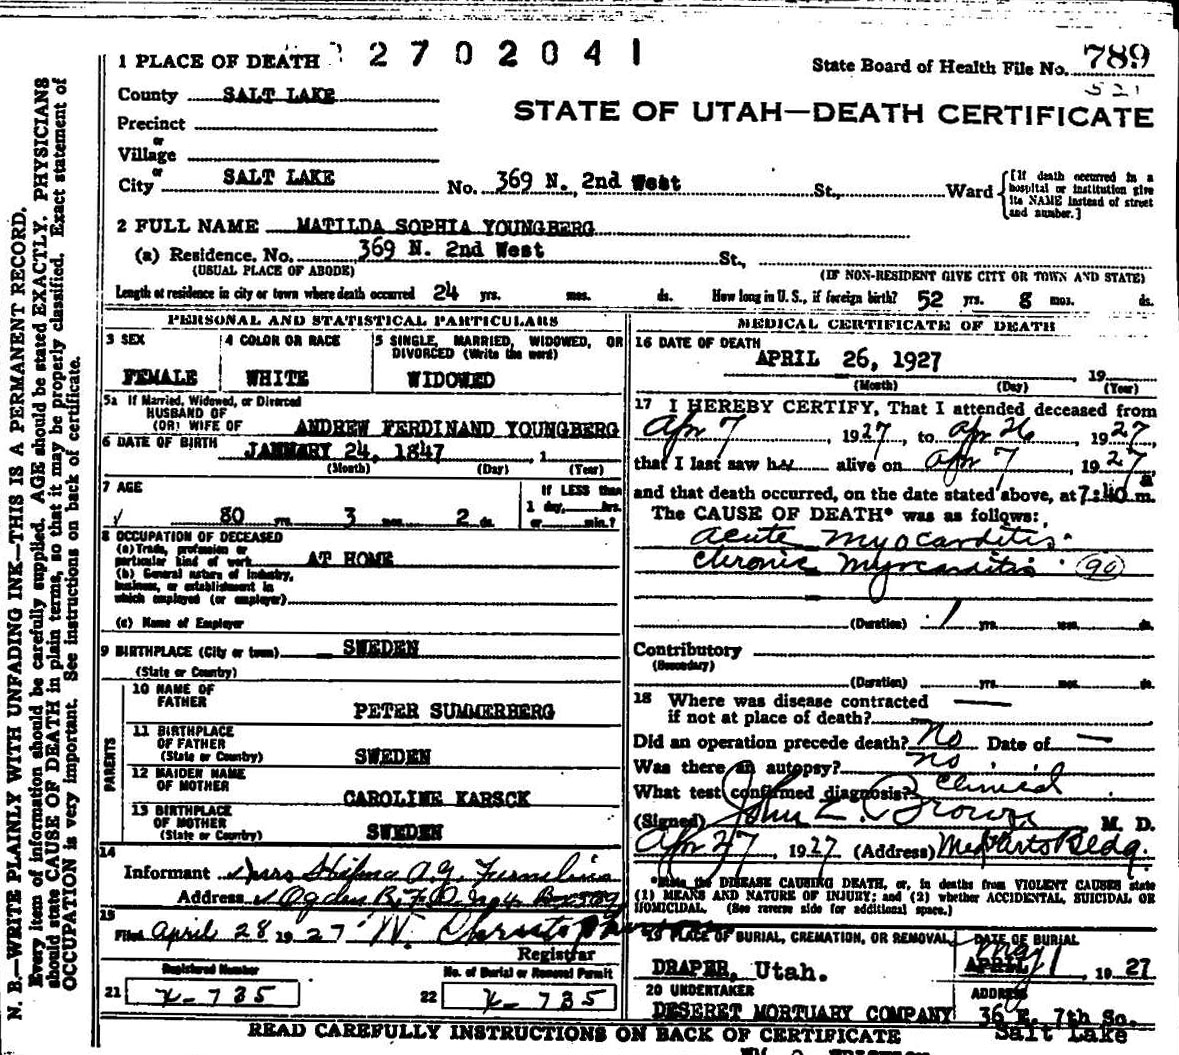 1 PLACE OF DEATH 2 7 0 2 0 4 1
State Board of Health File No. 789
521
County SALT LAKE
STATE OF UTAH—DEATH CERTIFICATE
Precinct
or
Village
or
City SALT LAKE No. 369 N. 2nd West St., Ward
[If death occurred in a hospital or institution give its NAME instead of street and number.]
2 FULL NAME MATILDA SOPHIA YOUNGBERG
(a) Residence. No. 369 N. 2nd West St.,
(USUAL PLACE OF ABODE) (IF NON-RESIDENT GIVE CITY OR TOWN AND STATE)
Length of residence in city or town where death occurred 24 yrs. mos. ds. How long in U.S., if foreign birth? 52 yrs. 8 mos. ds.
PERSONAL AND STATISTICAL PARTICULARS
3 SEX
FEMALE
4 COLOR OR RACE
WHITE
5 SINGLE, MARRIED, WIDOWED, OR
DIVORCED (Write the word)
WIDOWED
5a If Married, Widowed, or Divorced
HUSBAND OF
(OR) WIFE OF ANDREW FERDINAND YOUNGBERG
6 DATE OF BIRTH JANUARY 24, 1847 1
(Month) (Day) (Year)
7 AGE
80 yrs. 3 mos. 2 ds.
If LESS than
1 day, hrs.
or min.?
8 OCCUPATION OF DECEASED
(a) Trade, profession or
particular kind of work AT HOME
(b) General nature of industry,
business, or establishment in
which employed (or employer)
(c) Name of Employer
9 BIRTHPLACE (City or town) SWEDEN
(State or Country)
PARENTS
10 NAME OF
FATHER PETER SUMMERBERG
11 BIRTHPLACE
OF FATHER
(State or Country) SWEDEN
12 MAIDEN NAME
OF MOTHER CAROLINE KARSCK
13 BIRTHPLACE
OF MOTHER
(State or Country) SWEDEN
14
Informant Mrs Hilma A.G.
Address Ogden R.F.D. No 4 Box
15
Filed April 28 1927 W. Christopherson
Registrar
Registered Number
21 X-735
No. of Burial or Removal Permit
22 X-735
MEDICAL CERTIFICATE OF DEATH
16 DATE OF DEATH
APRIL 26, 1927 19
(Month) (Day) (Year)
17 I HEREBY CERTIFY, That I attended deceased from
Apr 7, 1927, to Apr 26, 1927,
that I last saw her alive on Apr 7, 1927,
and that death occurred, on the date stated above, at 7:40 a m.
The CAUSE OF DEATH* was as follows:
Acute Myocarditis
Chronic Myocarditis (90)
(Duration) 1 yrs. mos. ds.
Contributory
(Secondary)
(Duration) yrs. mos. ds.
18 Where was disease contracted
if not at place of death?
Did an operation precede death? No Date of —
Was there an autopsy? No
What test confirmed diagnosis? Clinical
(Signed) John Z. Brown M. D.
Apr 27, 1927 (Address) Med Arts Bldg.
*State the DISEASE CAUSING DEATH, or, in deaths from VIOLENT CAUSES state
(1) MEANS AND NATURE OF INJURY; and (2) whether ACCIDENTAL, SUICIDAL OR
HOMICIDAL. (See reverse side for additional space.)
19 PLACE OF BURIAL, CREMATION, OR REMOVAL
DRAPER, Utah.
DATE OF BURIAL
May 1
APRIL 1927
20 UNDERTAKER
DESERET MORTUARY COMPANY
ADDRESS
36 E. 7th So.
Salt Lake
READ CAREFULLY INSTRUCTIONS ON BACK OF CERTIFICATE
N. B.—WRITE PLAINLY WITH UNFADING INK—THIS IS A PERMANENT RECORD.
Every item of information should be carefully supplied. AGE should be stated EXACTLY. PHYSICIANS
should state CAUSE OF DEATH in plain terms, so that it may be properly classified. Exact statement of
OCCUPATION is very important. See instructions on back of certificate.